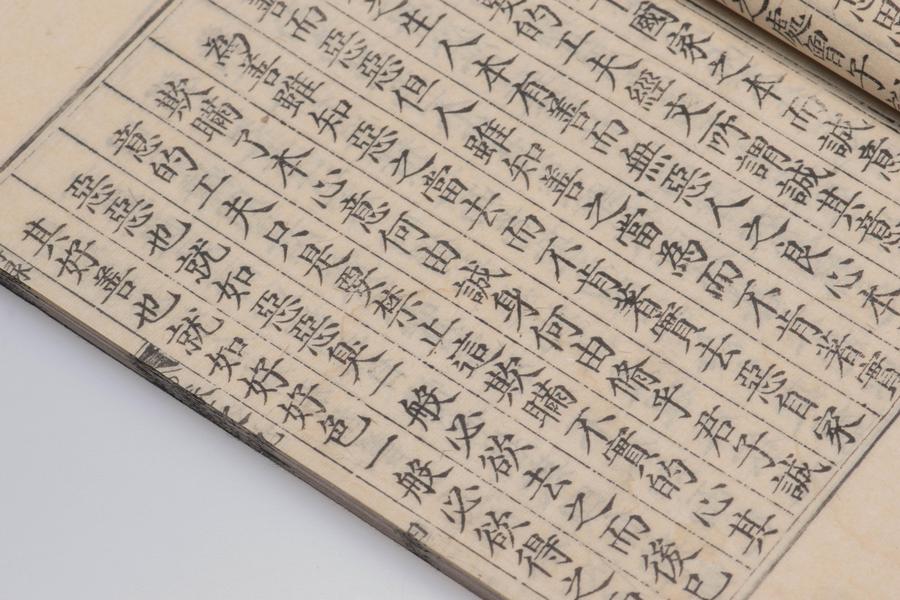 國家之本而誠意
的工夫經文所謂誠其意
之生人本有善而無惡人之良心本
善而惡惡但人雖知善之當為而不肯着實
為善雖知惡之當去而不肯着實去惡自家
欺瞞了本心意何由誠身何由脩乎君子誠
意的工夫只是要禁止這欺瞞不實的心其
惡惡也就如惡惡臭一般必欲去之而後已
其好善也就如好好色一般必欲得之